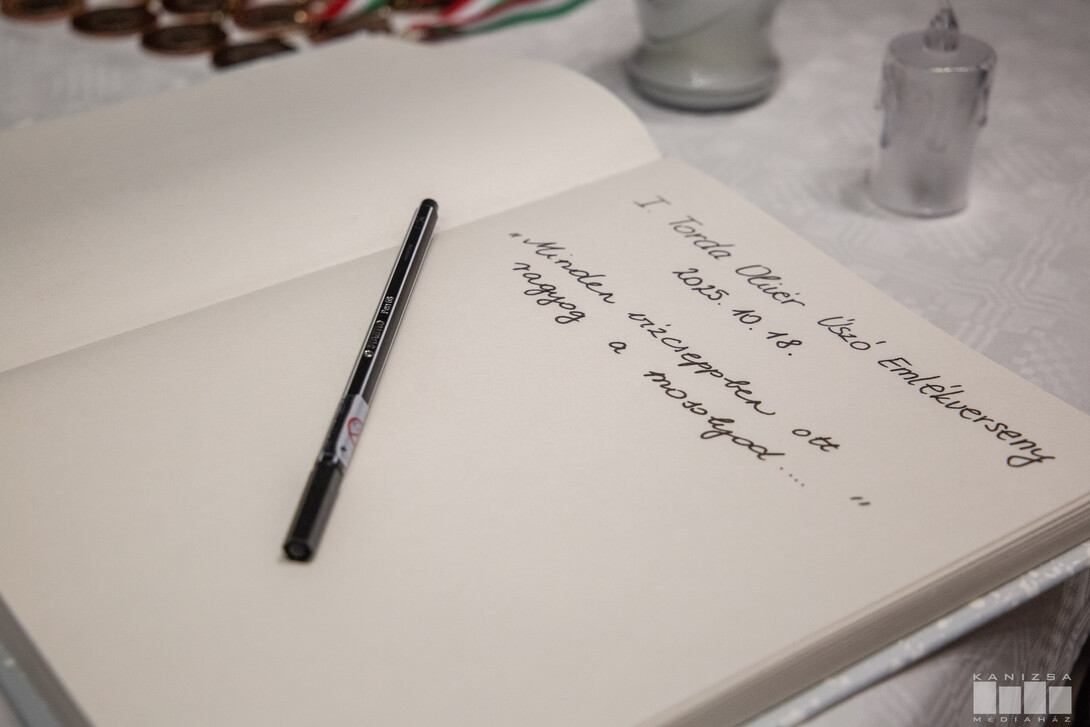 I. Torda Olivér Úszó Emlékverseny
2025. 10. 18.
„Minden vízcseppben ott
ragyog a mosolyod....”
STABILO
KANIZSA
MÉDIAHÁZ